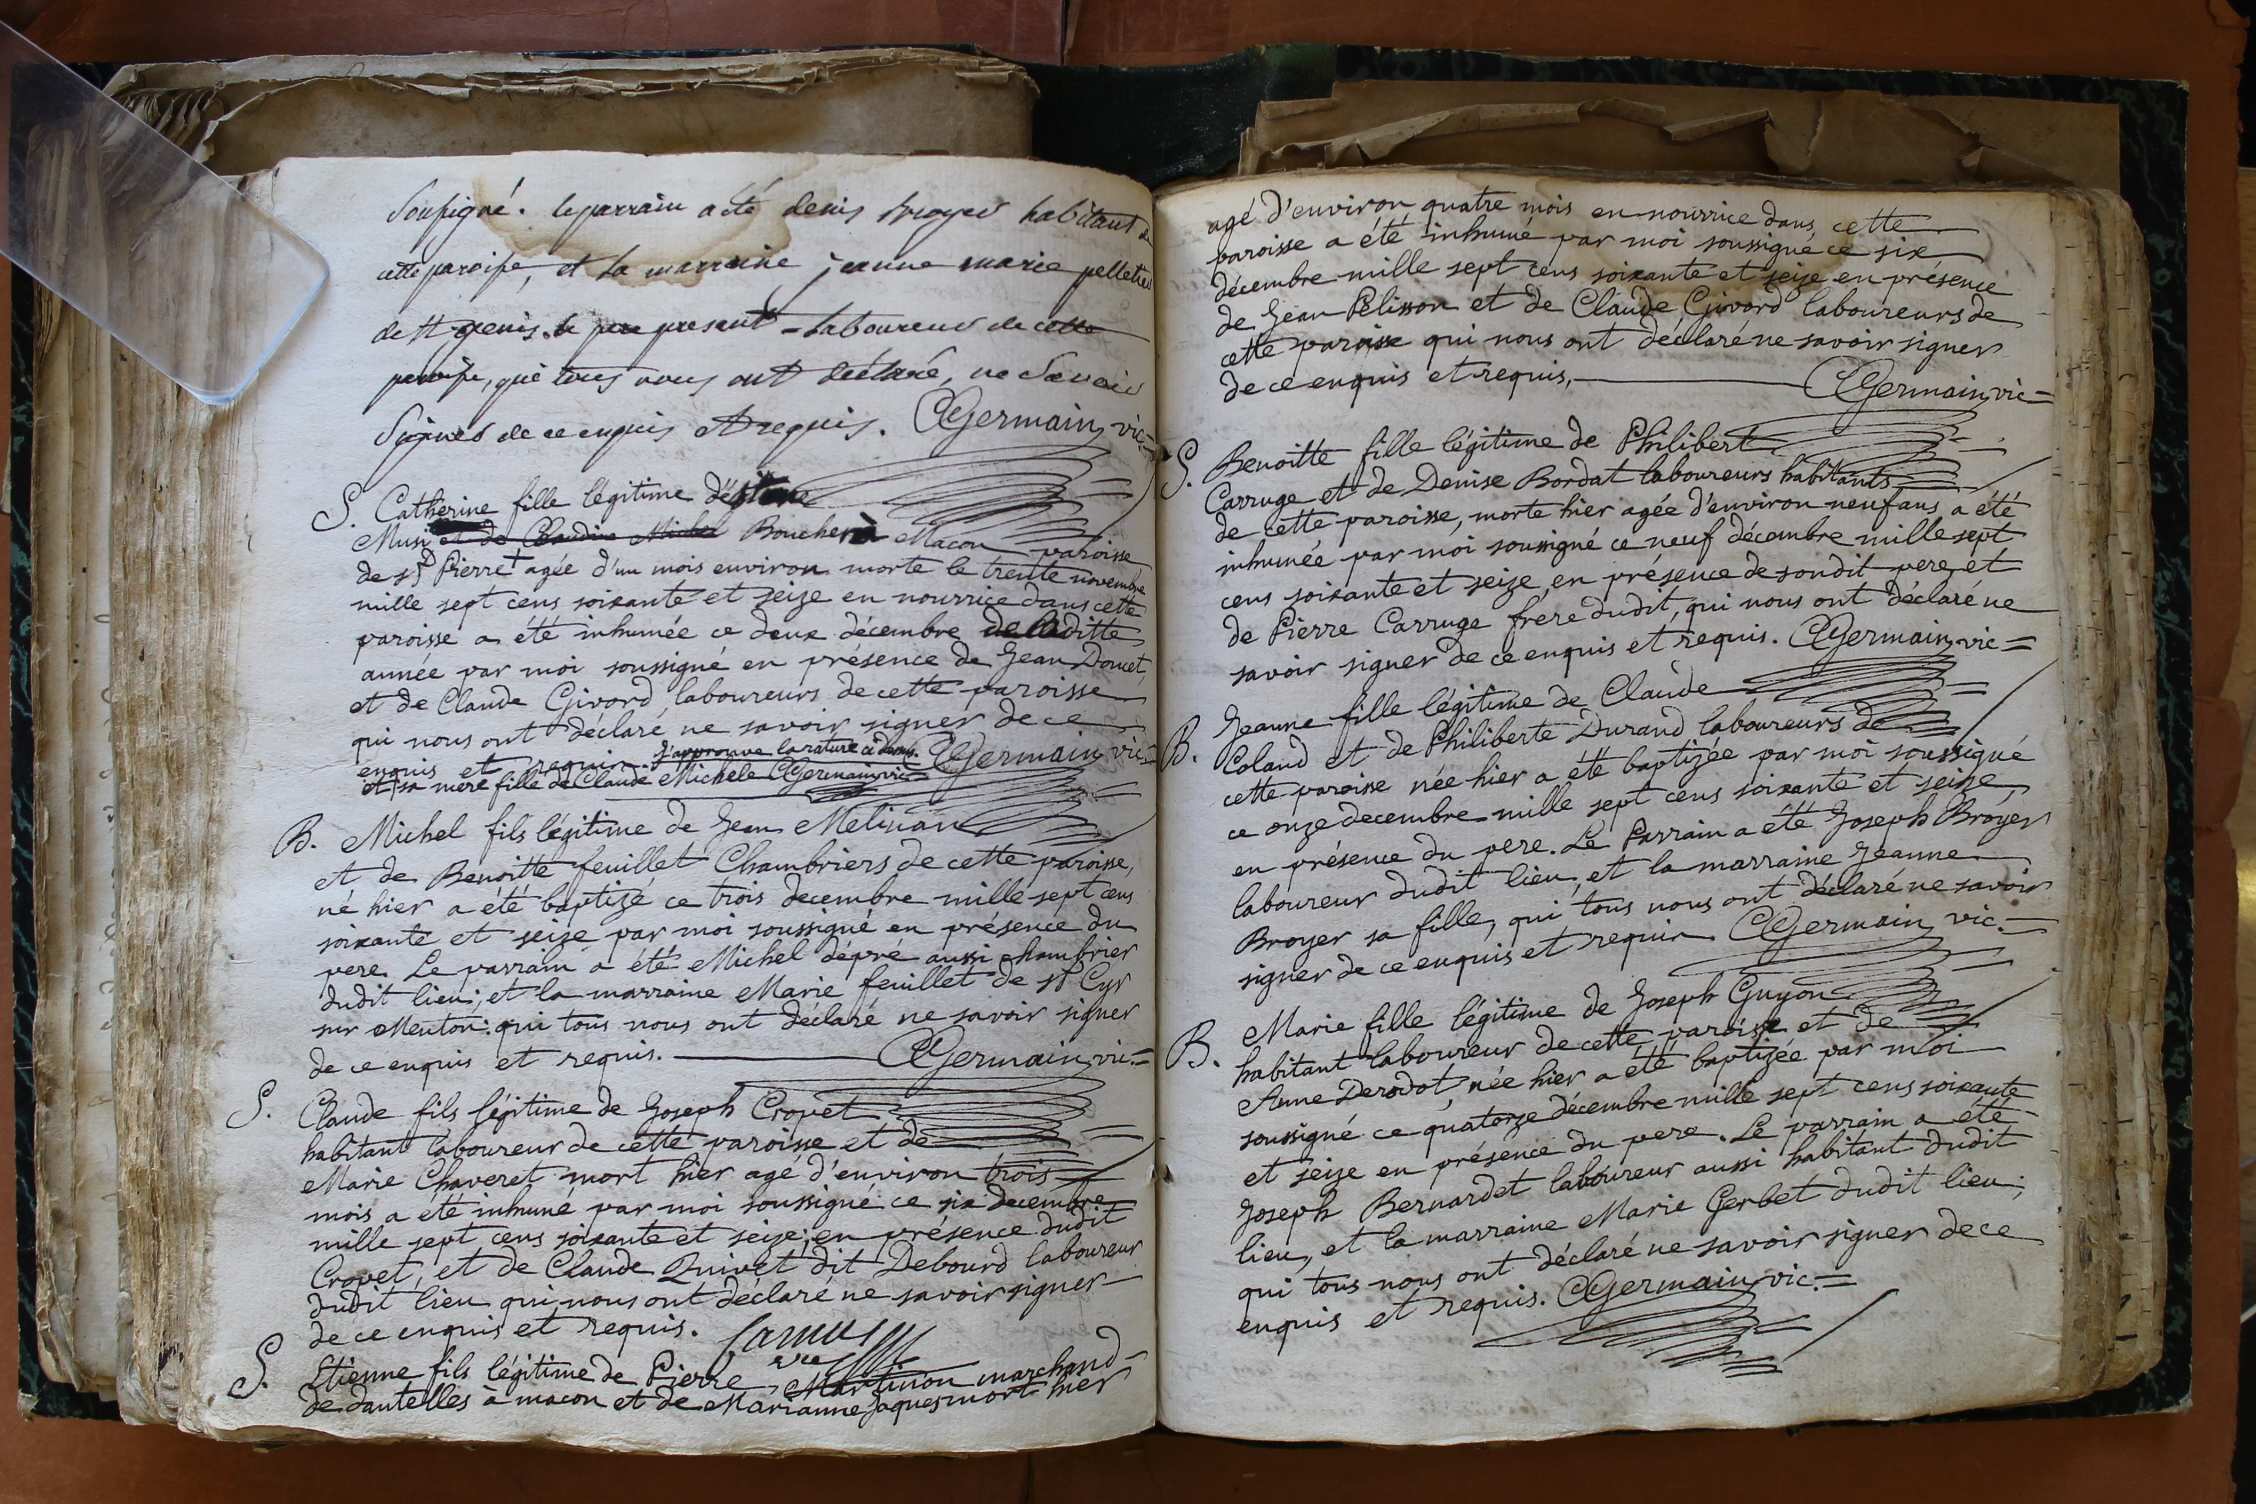 Soussigné. le parrain a été denis broyer habitant de
cette paroisse, et la marraine jeanne marie pelletier
de st genis. le pere present laboureur de cette
paroisse, qui tous nous ont déclaré, ne Savoir
Signer de ce enquis et requis. CGermain vic.
S. Catherine fille légitime
Musi et de Claudine Michel Boucher à Macon paroisse
de st Pierre + agée d'un mois environ morte le trente novembre
mille sept cens soixante et seize en nourrice dans cette
paroisse a été inhumée ce deux décembre de laditte
année par moi soussigné en présence de Jean Doucet
et de Claude Givord laboureurs de cette paroisse
qui nous ont déclaré ne savoir signer de ce
enquis et requis. J'approuve la rature ci dessus. CGermain vic.
et sa mere fille de Claude Michele CGermain vic
B. Michel fils légitime de Jean Melinan
et de Benoitte feuillet Chambriers de cette paroisse,
né hier a été baptizé ce trois decembre mille sept cens
soixante et seize par moi soussigné en présence du
pere. Le parrain a été Michel dépré aussi chambrier
dudit lieu; et la marraine Marie feuillet de st Cyr
sur Menton: qui tous nous ont déclaré ne savoir signer
de ce enquis et requis. CGermain vic.
S. Claude fils légitime de Joseph Cropet
habitant laboureur de cette paroisse et de
Marie Chaveret mort hier agé d'environ trois
mois a été inhumé par moi soussigné ce six decembre
mille sept cens soixante et seize; en présence dudit
Cropet, et de Claude Quivet dit Debourd laboureur
dudit lieu qui nous ont déclaré ne savoir signer
de ce enquis et requis. Camus
S. Etienne fils légitime de Pierre Martinon marchand
de dantelles à macon et de Marianne Jaques mort hier
agé d'environ quatre mois en nourrice dans cette
paroisse a été inhumé par moi soussigné ce six
décembre mille sept cens soixante et seize en présence
de Jean Pelisson et de Claude Givord laboureurs de
cette paroisse qui nous ont déclaré ne savoir signer
de ce enquis et requis. CGermain vic
S. Benoitte fille légitime de Philibert
Carruge et de Denise Bordat laboureurs habitants
de cette paroisse, morte hier agée d'environ neuf ans a été
inhumée par moi soussigné ce neuf décembre mille sept
cens soixante et seize, en présence de sondit pere, et
de Pierre Carruge frere dudit, qui nous ont déclaré ne
savoir signer de ce enquis et requis. CGermain vic
B. Jeanne fille légitime de Claude
Coland et de Philiberte Durand laboureurs de
cette paroisse née hier a été baptizée par moi soussigné
ce onze decembre mille sept cens soixante et seize,
en présence du pere. Le Parrain a été Joseph Broyer
laboureur dudit lieu, et la marraine Jeanne
Broyer sa fille, qui tous nous ont déclaré ne savoir
signer de ce enquis et requis CGermain vic.
B. Marie fille légitime de Joseph Guyon
habitant laboureur de cette paroisse et de
Anne Derodot, née hier a été baptizée par moi
soussigné ce quatorze décembre mille sept cens soixante
et seize en présence du pere. Le parrain a été
Joseph Bernardet laboureur aussi habitant dudit
lieu, et la marraine Marie Gerbet dudit lieu;
qui tous nous ont déclaré ne savoir signer de ce
enquis et requis. CGermain vic.